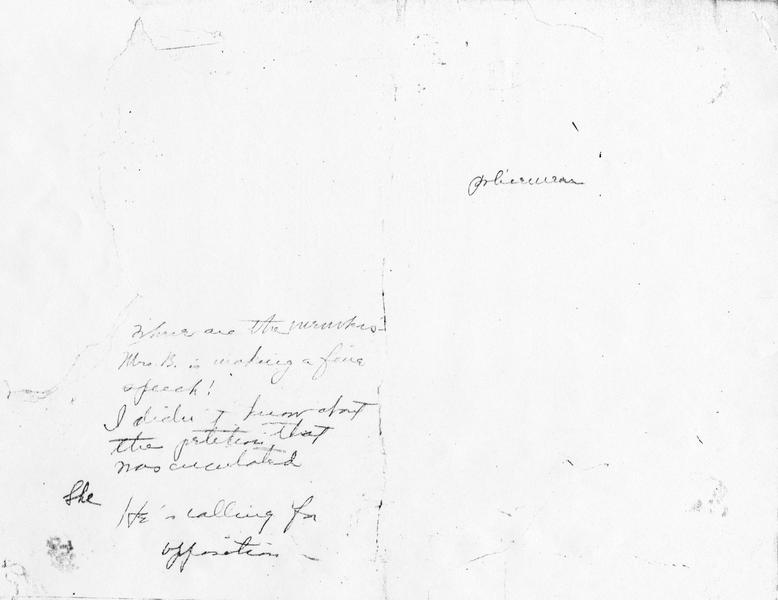 Where are the members
Mrs. B. is making a fine
speech!
I didn't know about
the petition that
was circulated
She
He's calling for
opposition
policeman